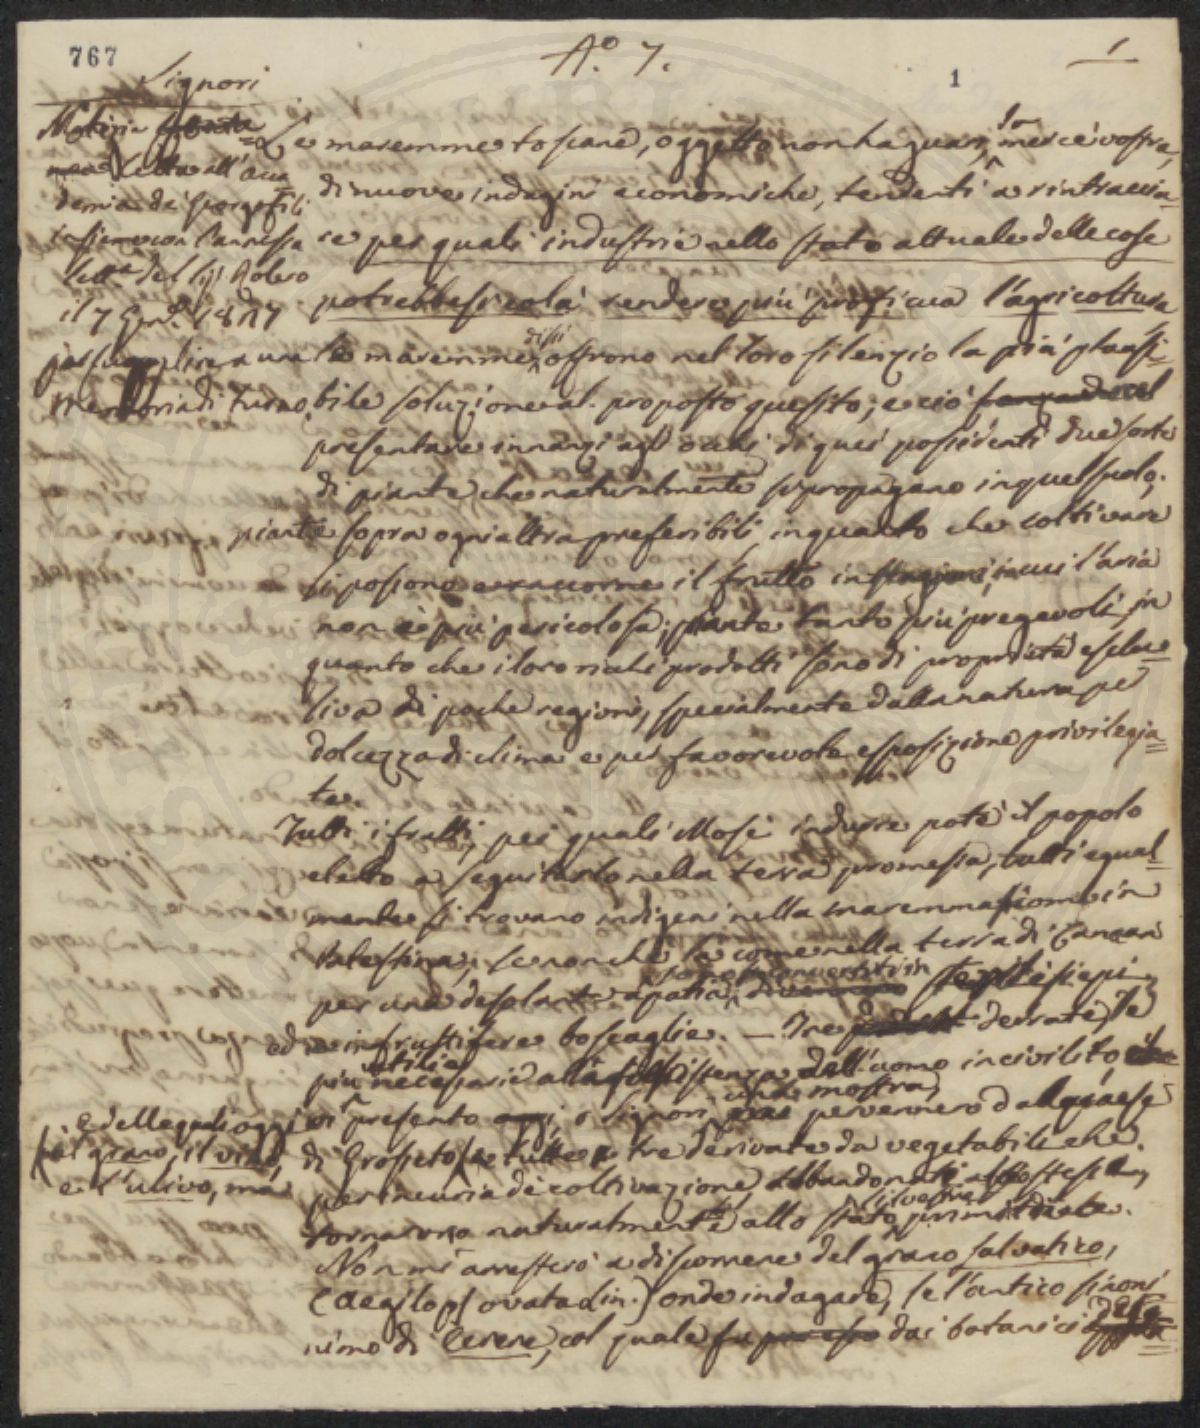 767
A.º 7.
1
1
Signori
Memoria
letta all'Acca
demia de' Georgofili
insieme con l'annessa
lett.ª del Sig.
il 7 Genn.
per supplire a una
memoria di turno
Le maremme toscane, oggetto non ha guari, mercè vostra,
di nuove indagini economiche, tendenti a rintraccia-
re per quali industrie nello stato attuale delle cose
potrebbesi colà rendere più proficua l'agricoltura
le maremme, dissi, offrono nel loro silenzio la più plausi-
bile soluzione al proposto quesito; e ciò
presentare innanzi agli occhi di quei possidenti due sorte
di piante che naturalmente si propagano in quel suolo;
piante sopra ogni altra preferibili, inquanto che coltivare
si possono e raccorne il frutto in stagioni, in cui l'aria
non è più pericolosa; piante tanto più pregevoli, in
quanto che i loro ricchi prodotti sono di proprietà esclu-
siva di poche regioni, specialmente dalla natura per
dolcezza di clima e per favorevole esposizione privilegia-
te.
Tutti i frutti, pei quali Mosè indurre potè il popolo
eletto a seguitarlo nella terra promessa, tutti egual-
mente si trovano indigeni nella maremma siccome in
Palestina; se non che là come nella terra di Canaan
per una desolante apatia, sono convertiti in sterili siepi
ed in infruttifere boscaglie. — Tre derrate, le
più utili e necessarie all'esistenza dell'uomo incivilito,
e delle quali oggi vi presento, o Signori, una mostra, pervennero dal paese
di Grosseto, il grano, il vino, e l'ulivo, ma tutte e tre derivate da vegetabili che
per incuria di coltivazione, abbandonati a se stessi,
tornarono naturalmente allo stato silvestre primordiale.
Non mi arresterò a discorrere del grano salvatico,
(Aegilops ovata Lin.) onde indagare, se l'antico sinoni
nimo di Cerere, col quale fu dai botanici